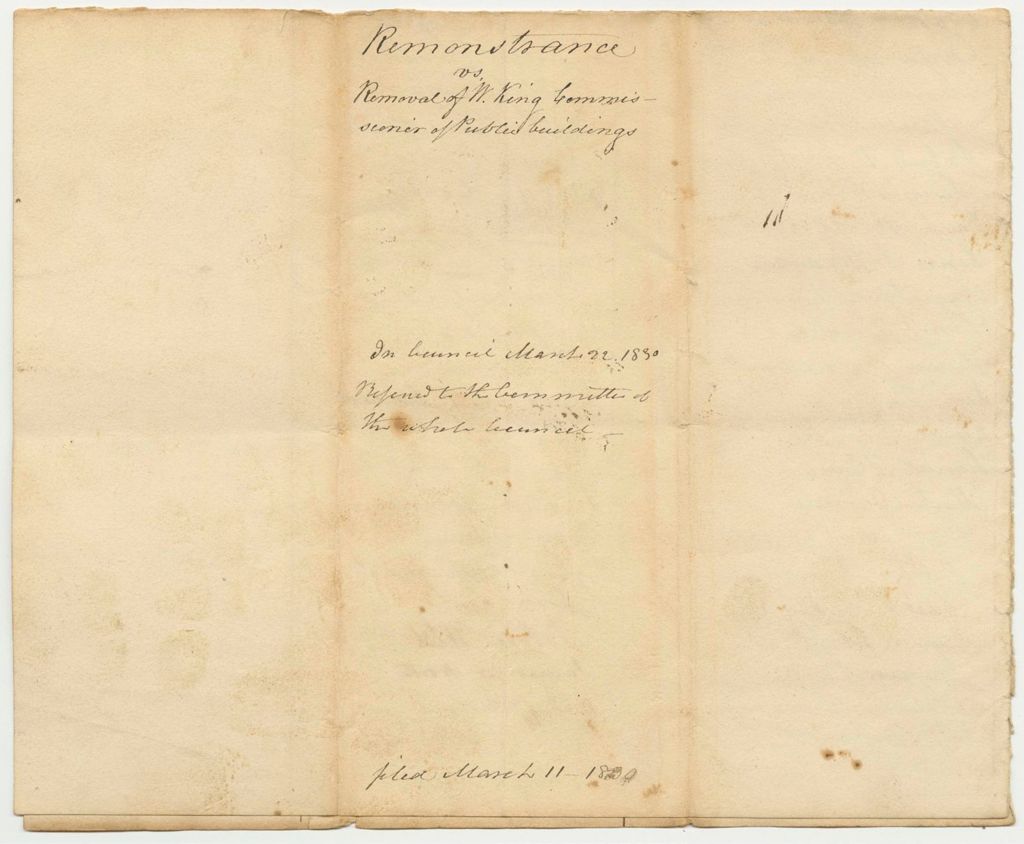 Remonstrance
vs.
Removal of W. King Commis-
sioner of Public buildings
In Council March 22. 1830
Referred to the Committee of
the whole Council —
filed March 11 - 1830